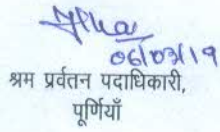 06/03/19
श्रम प्रर्वतन पदाधिकारी,
पूर्णियाँ